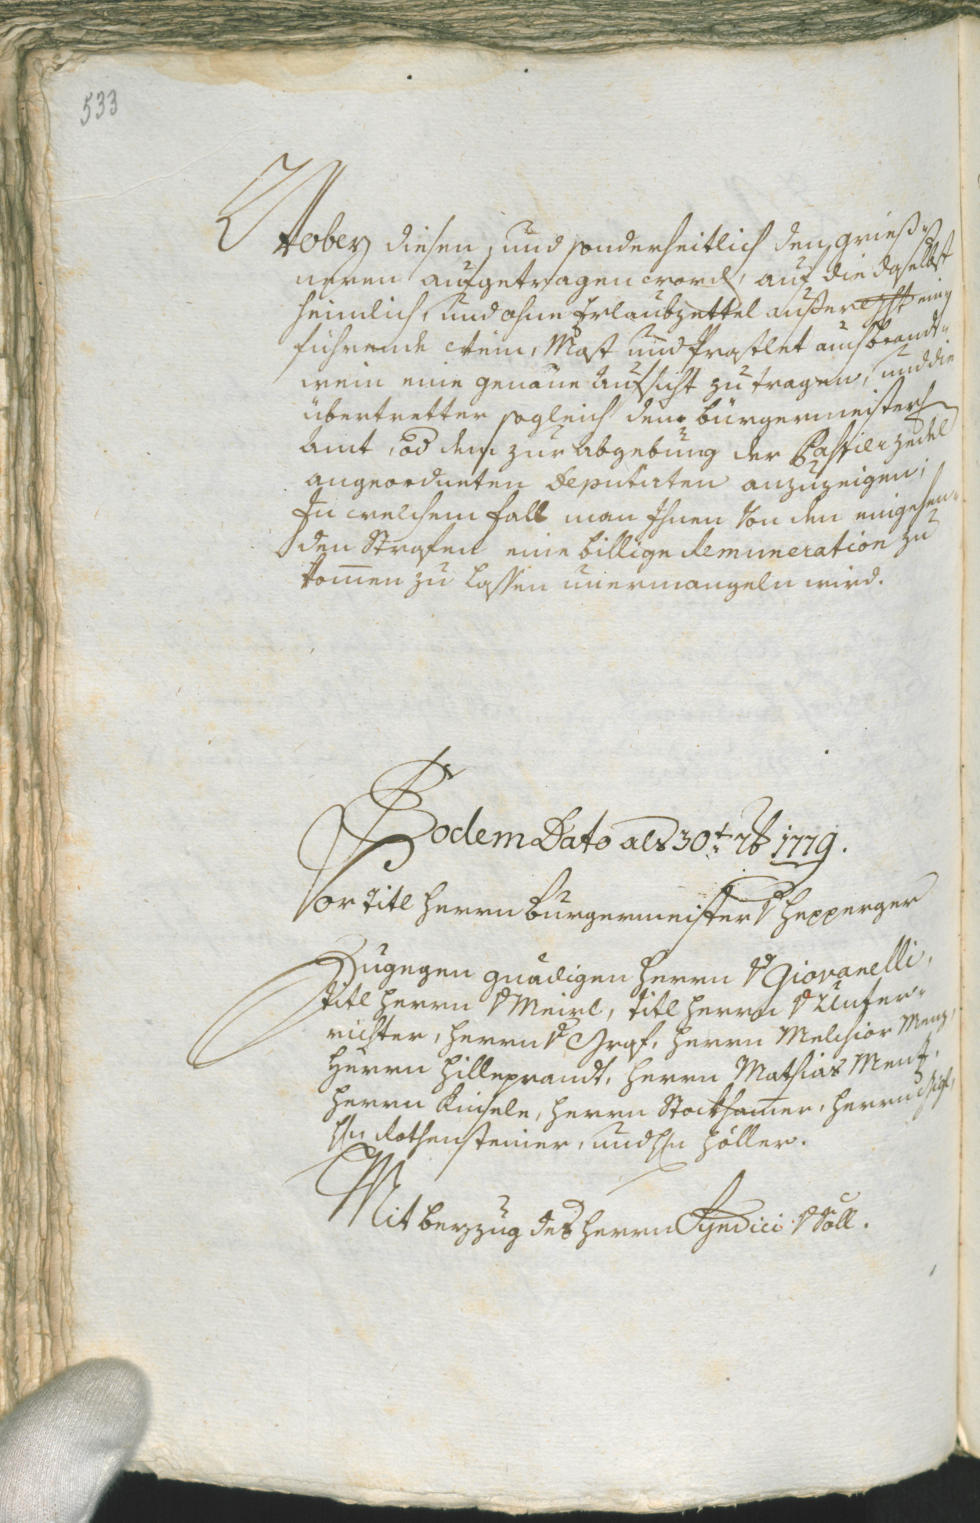 533
Wobey diesen, und sonderheitlich den Grieß=
neren aufgetragen word, auf die daselbst
heimlich, und ohne Erlaubzettel außer etscht ein
führende Wein, Most und Praslet auch brandt=
wein eine genaue Aufsicht zu tragen, und die
übertretter sogleich dem burgermeister
Amt, od dem zur abgebung der Passier zedel
angeordneten Deputirten anzuzeigen;
In welchem fall man Ihnen von den eingehen=
den Strafen eine billige Remuneration zu
komen zu lassen unermanglen wird.
Eodem Dato als 30t 7b 1779.
Vor titl herrn burgermeister v hepperger
Zugegen gnädigen herrn v Giovanelli,
titl herrn v Meirl, titl herrn v Unter=
richter, herrn v Graf, herrn Melchior Menz,
Herrn hilleprandt, herrn Mathias Menz,
herrn Kinsele, herrn Stockhamer, herrn
hn Rothensteiner, und hn höller.
Mit beyzug des herrn Syndici v Söll.